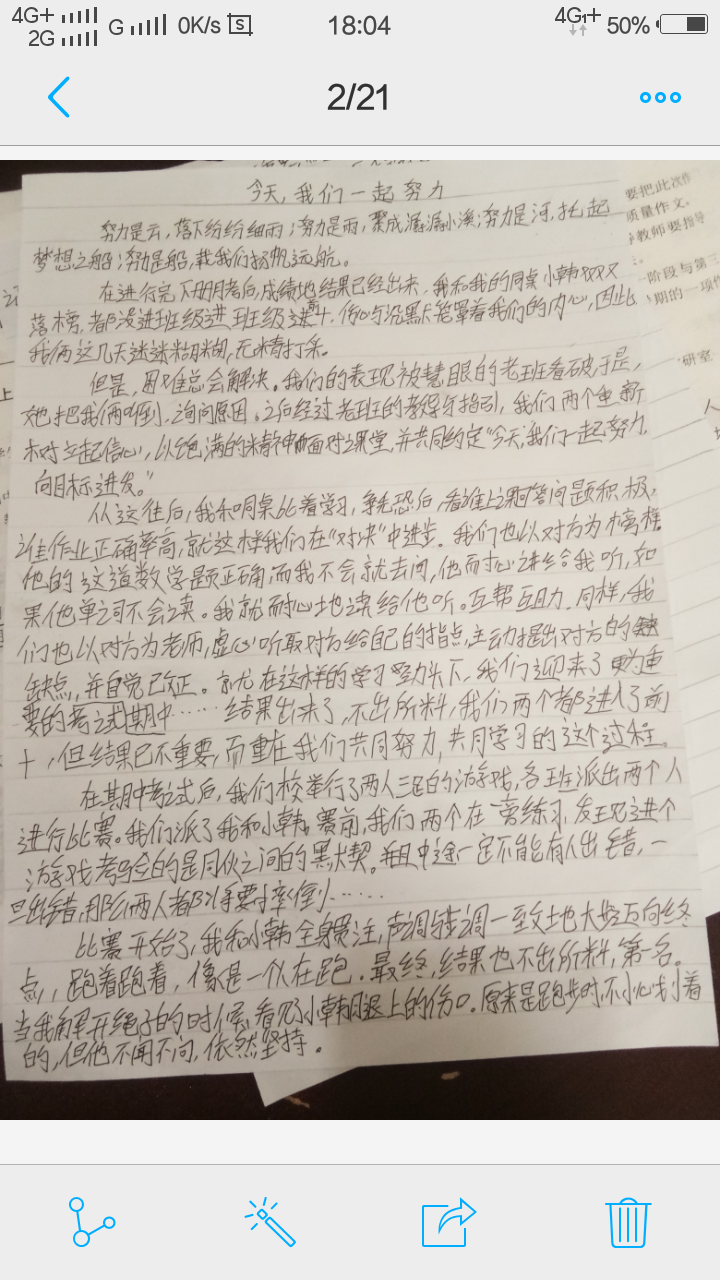 4G+
2G
G
0K/s
18:04
4G+
50%
2/21
今天,我们一起努力
努力是云,落下纷纷细雨;努力是雨,聚成潺潺小溪;努力是河,托起
梦想之船;努力是船,载我们扬帆远航。
在进行完下册月考后,成绩地结果已经出来,我和我的同桌小韩双双又
落榜,都没进班级进班级进前十,伤心与沉默笼罩着我们的内心,因此
我俩这几天迷迷糊糊,无精打采。
但是,困难总会解决。我们的表现被慧眼的老班看破,于是,
她把我俩叫到,询问原因。之后经过老班的教导与指引,我们两个重新
树立起信心,以饱满的精神面对课堂,并共同约定“今天,我们一起努力,
向目标进发。”
从这往后,我和同桌比着学习,争先恐后,看谁上课回答问题积极,
谁作业正确率高,就这样我们在“对决”中进步。我们也以对方为榜样
他的这道数学题正确而我不会就去问,他耐心讲给我听,如
果他单词不会读。我就耐心地读给他听。互帮互助,同样,我
们也以对方为老师,虚心听取对方给自己的指点,主动提出对方的
缺点,并自觉已纠正。就在这样的学习势头下,我们迎来了更为重
要的考试期中……结果出来了,不出所料,我们两个都进入了前
十,但结果已不重要,而重在我们共同努力,共同学习的这个过程。
在期中考试后,我们校举行了两人三足的游戏,各班派出两个人
进行比赛。我们派了我和小韩,赛前,我们两个在一旁练习,发现这个
游戏考验的是同伙之间的默契。并且中途一定不能有人出错,一
旦出错,那么两人都将要摔倒……
比赛开始了,我和小韩全身贯注,声调步调一致地大步迈向终
点,跑着跑着,像是一个人在跑。最终,结果也不出所料,第一名。
当我解开绳子的时候,看见了小韩腿上的伤口。原来是跑步时,不小心划着
的,但他不闻不问,依然坚持。
要把此次作
质量作文。
教师要指导
一阶段与第三
期的一项作
研室